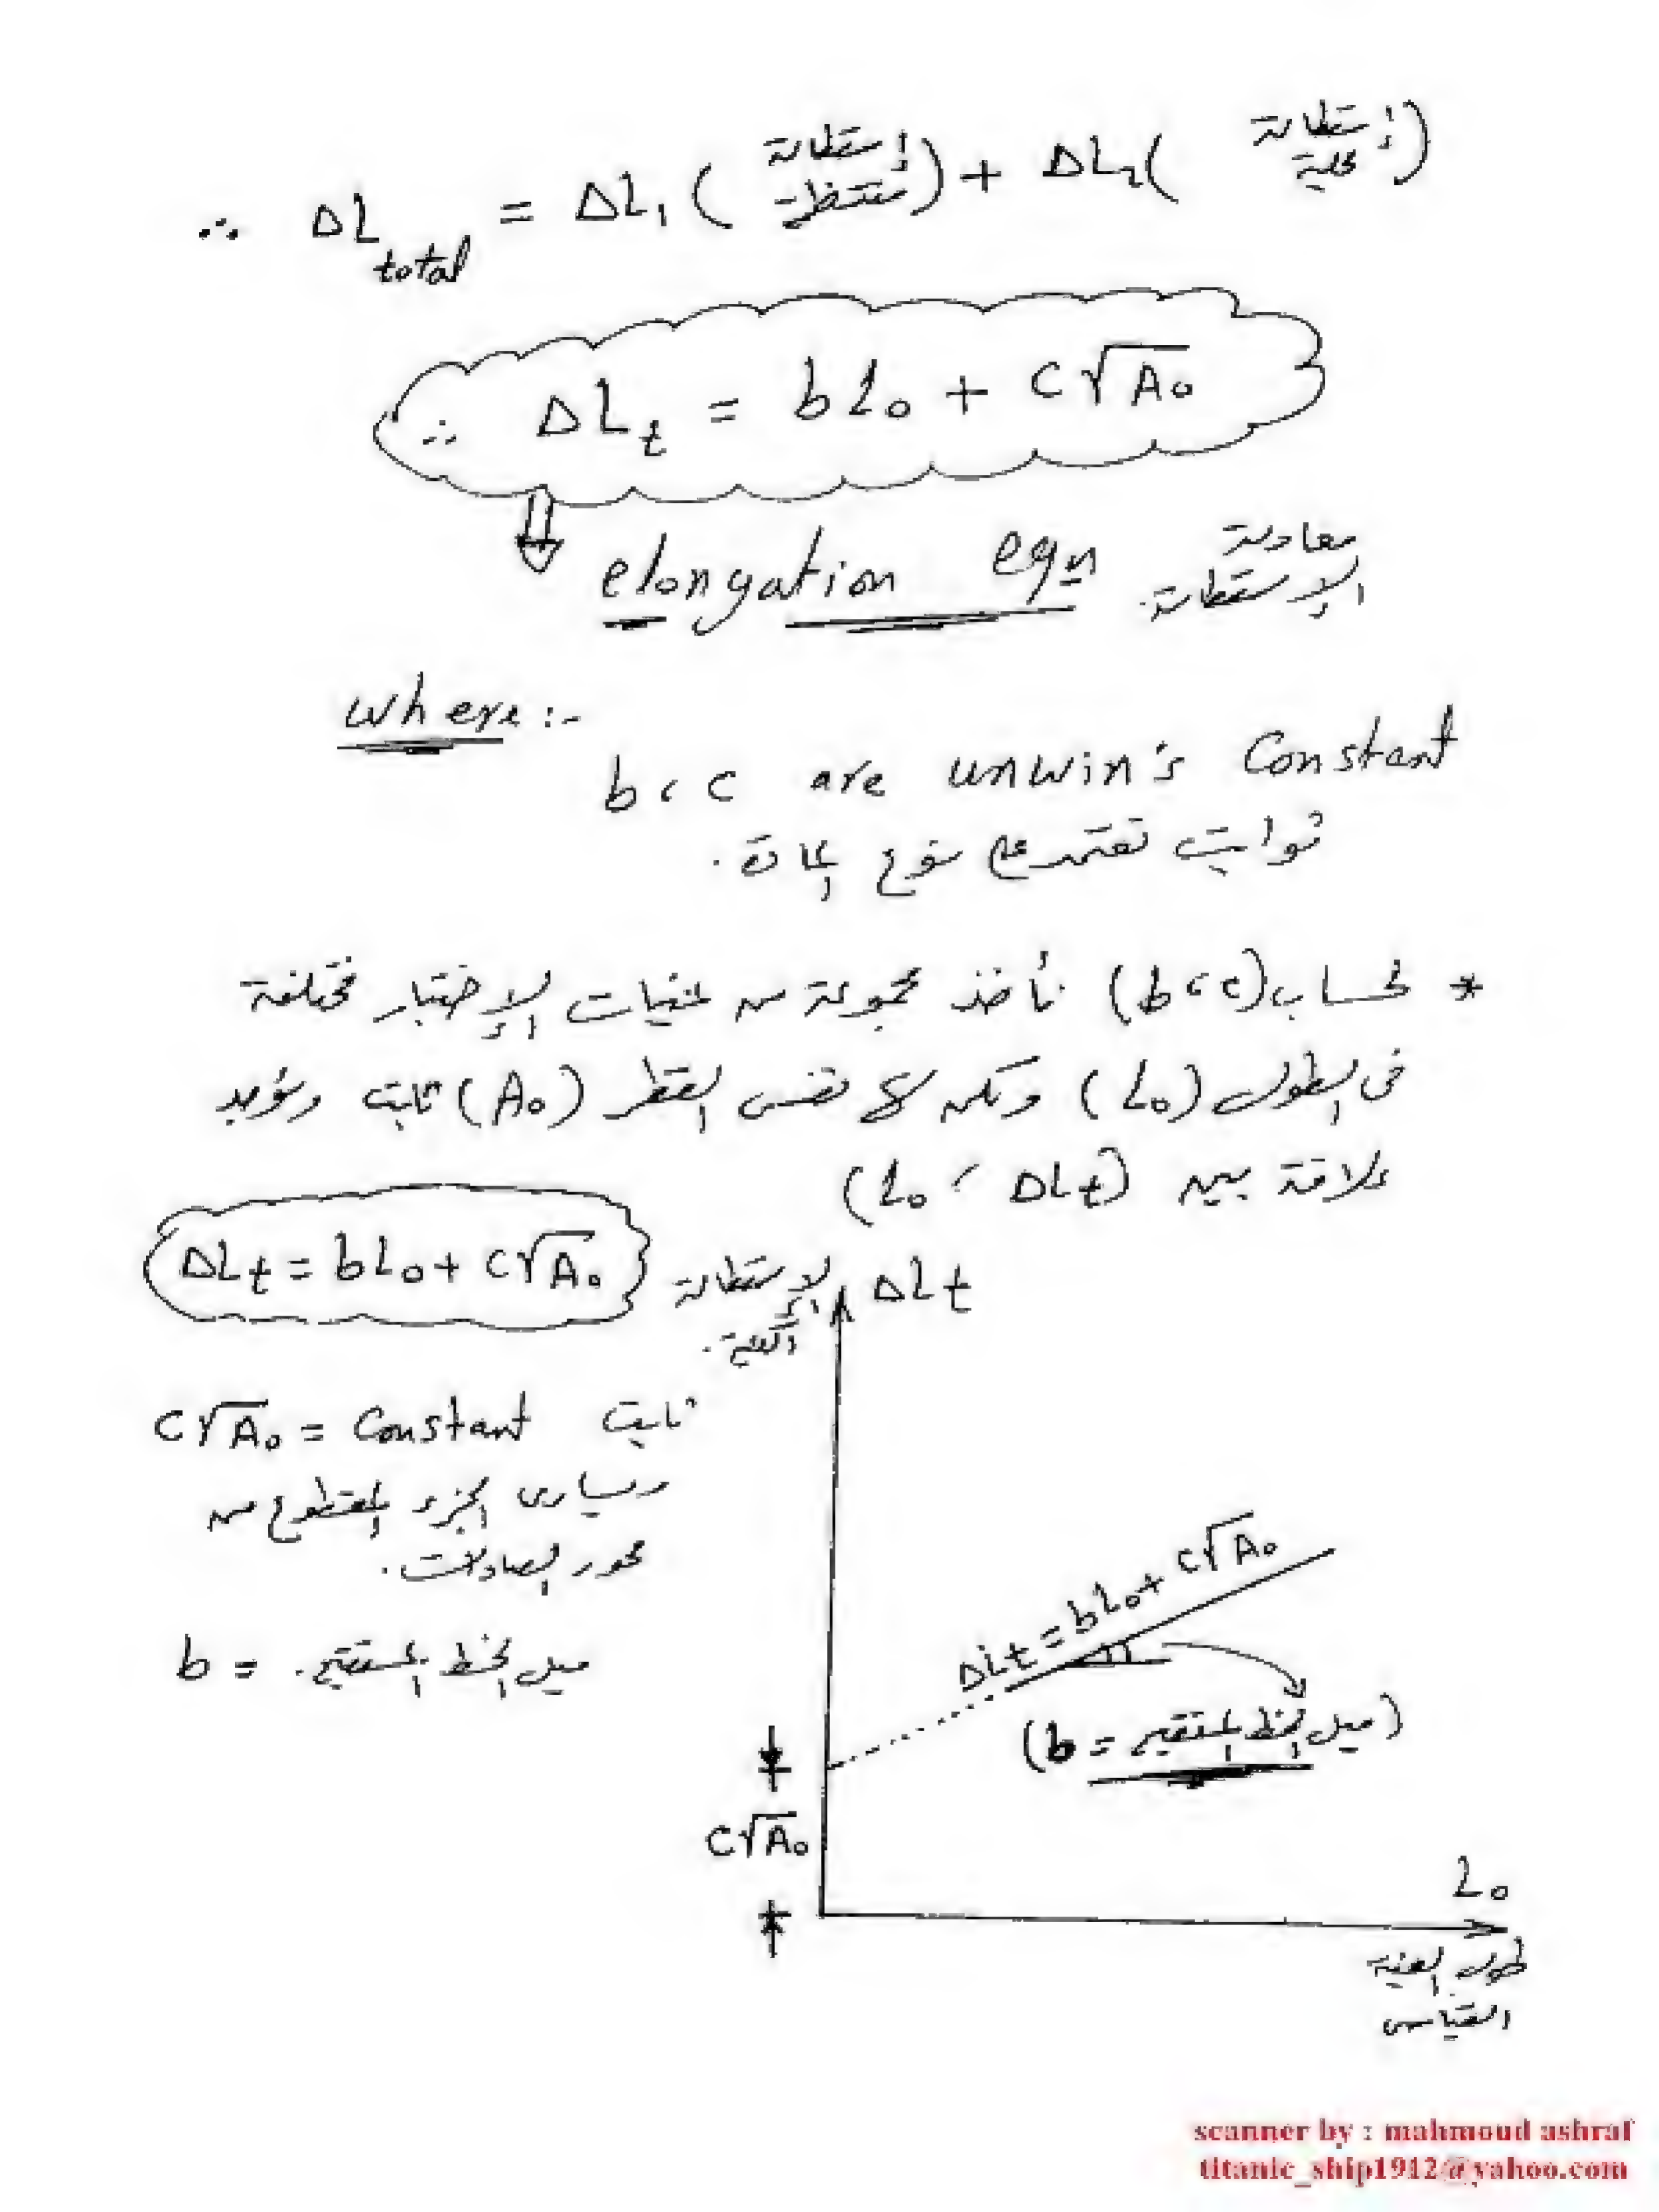 ∴ ΔL total = ΔL₁ (إستطالة منتظمة) + ΔL₂ (إستطالة محلية)
∴ ΔLt = bL₀ + C√A₀
elongation eqn معادلة الإستطالة.
where:-
b، c are unwin's Constant
ثوابت تعتمد على نوع المادة.
* لحساب (b، c) نأخذ مجموعة من عينات الإختبار مختلفة
فى الطول (L₀) ولكن لها نفس القطر (A₀) ثابت ونوجد
علاقة بين (L₀، ΔLt)
ΔLt = bL₀ + C√A₀
الإستطالة الكلية.
ΔLt
C√A₀ = Constant ثابت
ويساوى الجزء المقطوع من
محور الصادات.
b = ميل الخط المستقيم.
ΔLt = bL₀ + C√A₀
(b = ميل الخط المستقيم)
C√A₀
L₀
طول العينة
القياسى
scanner by : mahmoud ashraf
titanic_ship1912@yahoo.com